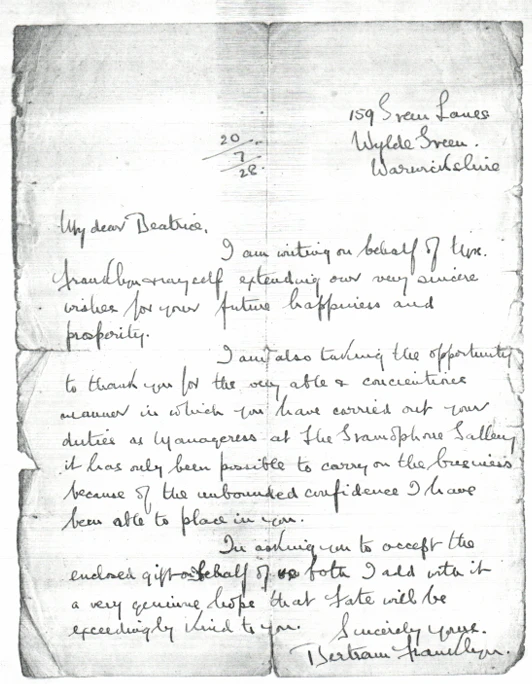 159 Green Lanes
Wylde Green.
Warwickshire
20/7/28.
My dear Beatrice,
I am writing on behalf of Mrs.
Franklyn & myself extending our very sincere
wishes for your future happiness and
prosperity.
I am also taking the opportunity
to thank you for the very able & concientious
manner in which you have carried out your
duties as Manageress at The Gramophone Gallery
it has only been possible to carry on the business
because of the unbounded confidence I have
been able to place in you.
In asking you to accept the
enclosed gift on behalf of us both I add with it
a very genuine hope that fate will be
exceedingly kind to you.
Sincerely yours.
Bertram Franklyn.